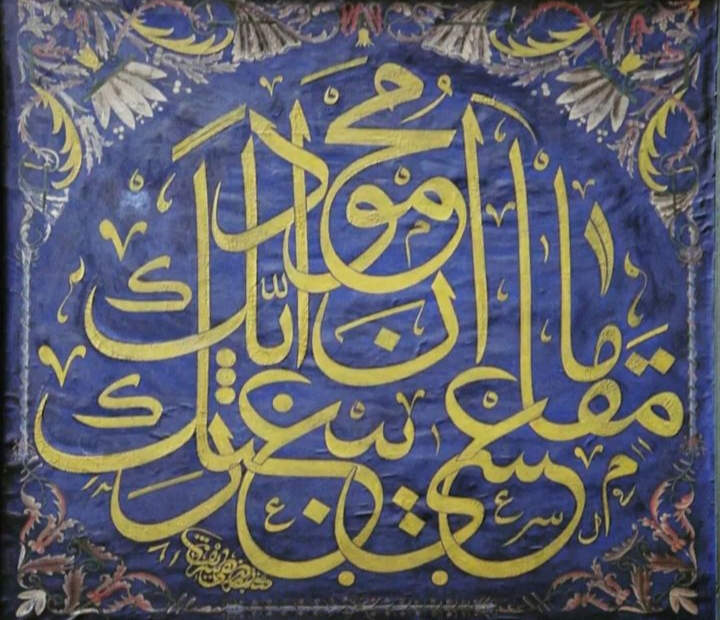 عسى ان يبعثك ربك مقاما محمودا